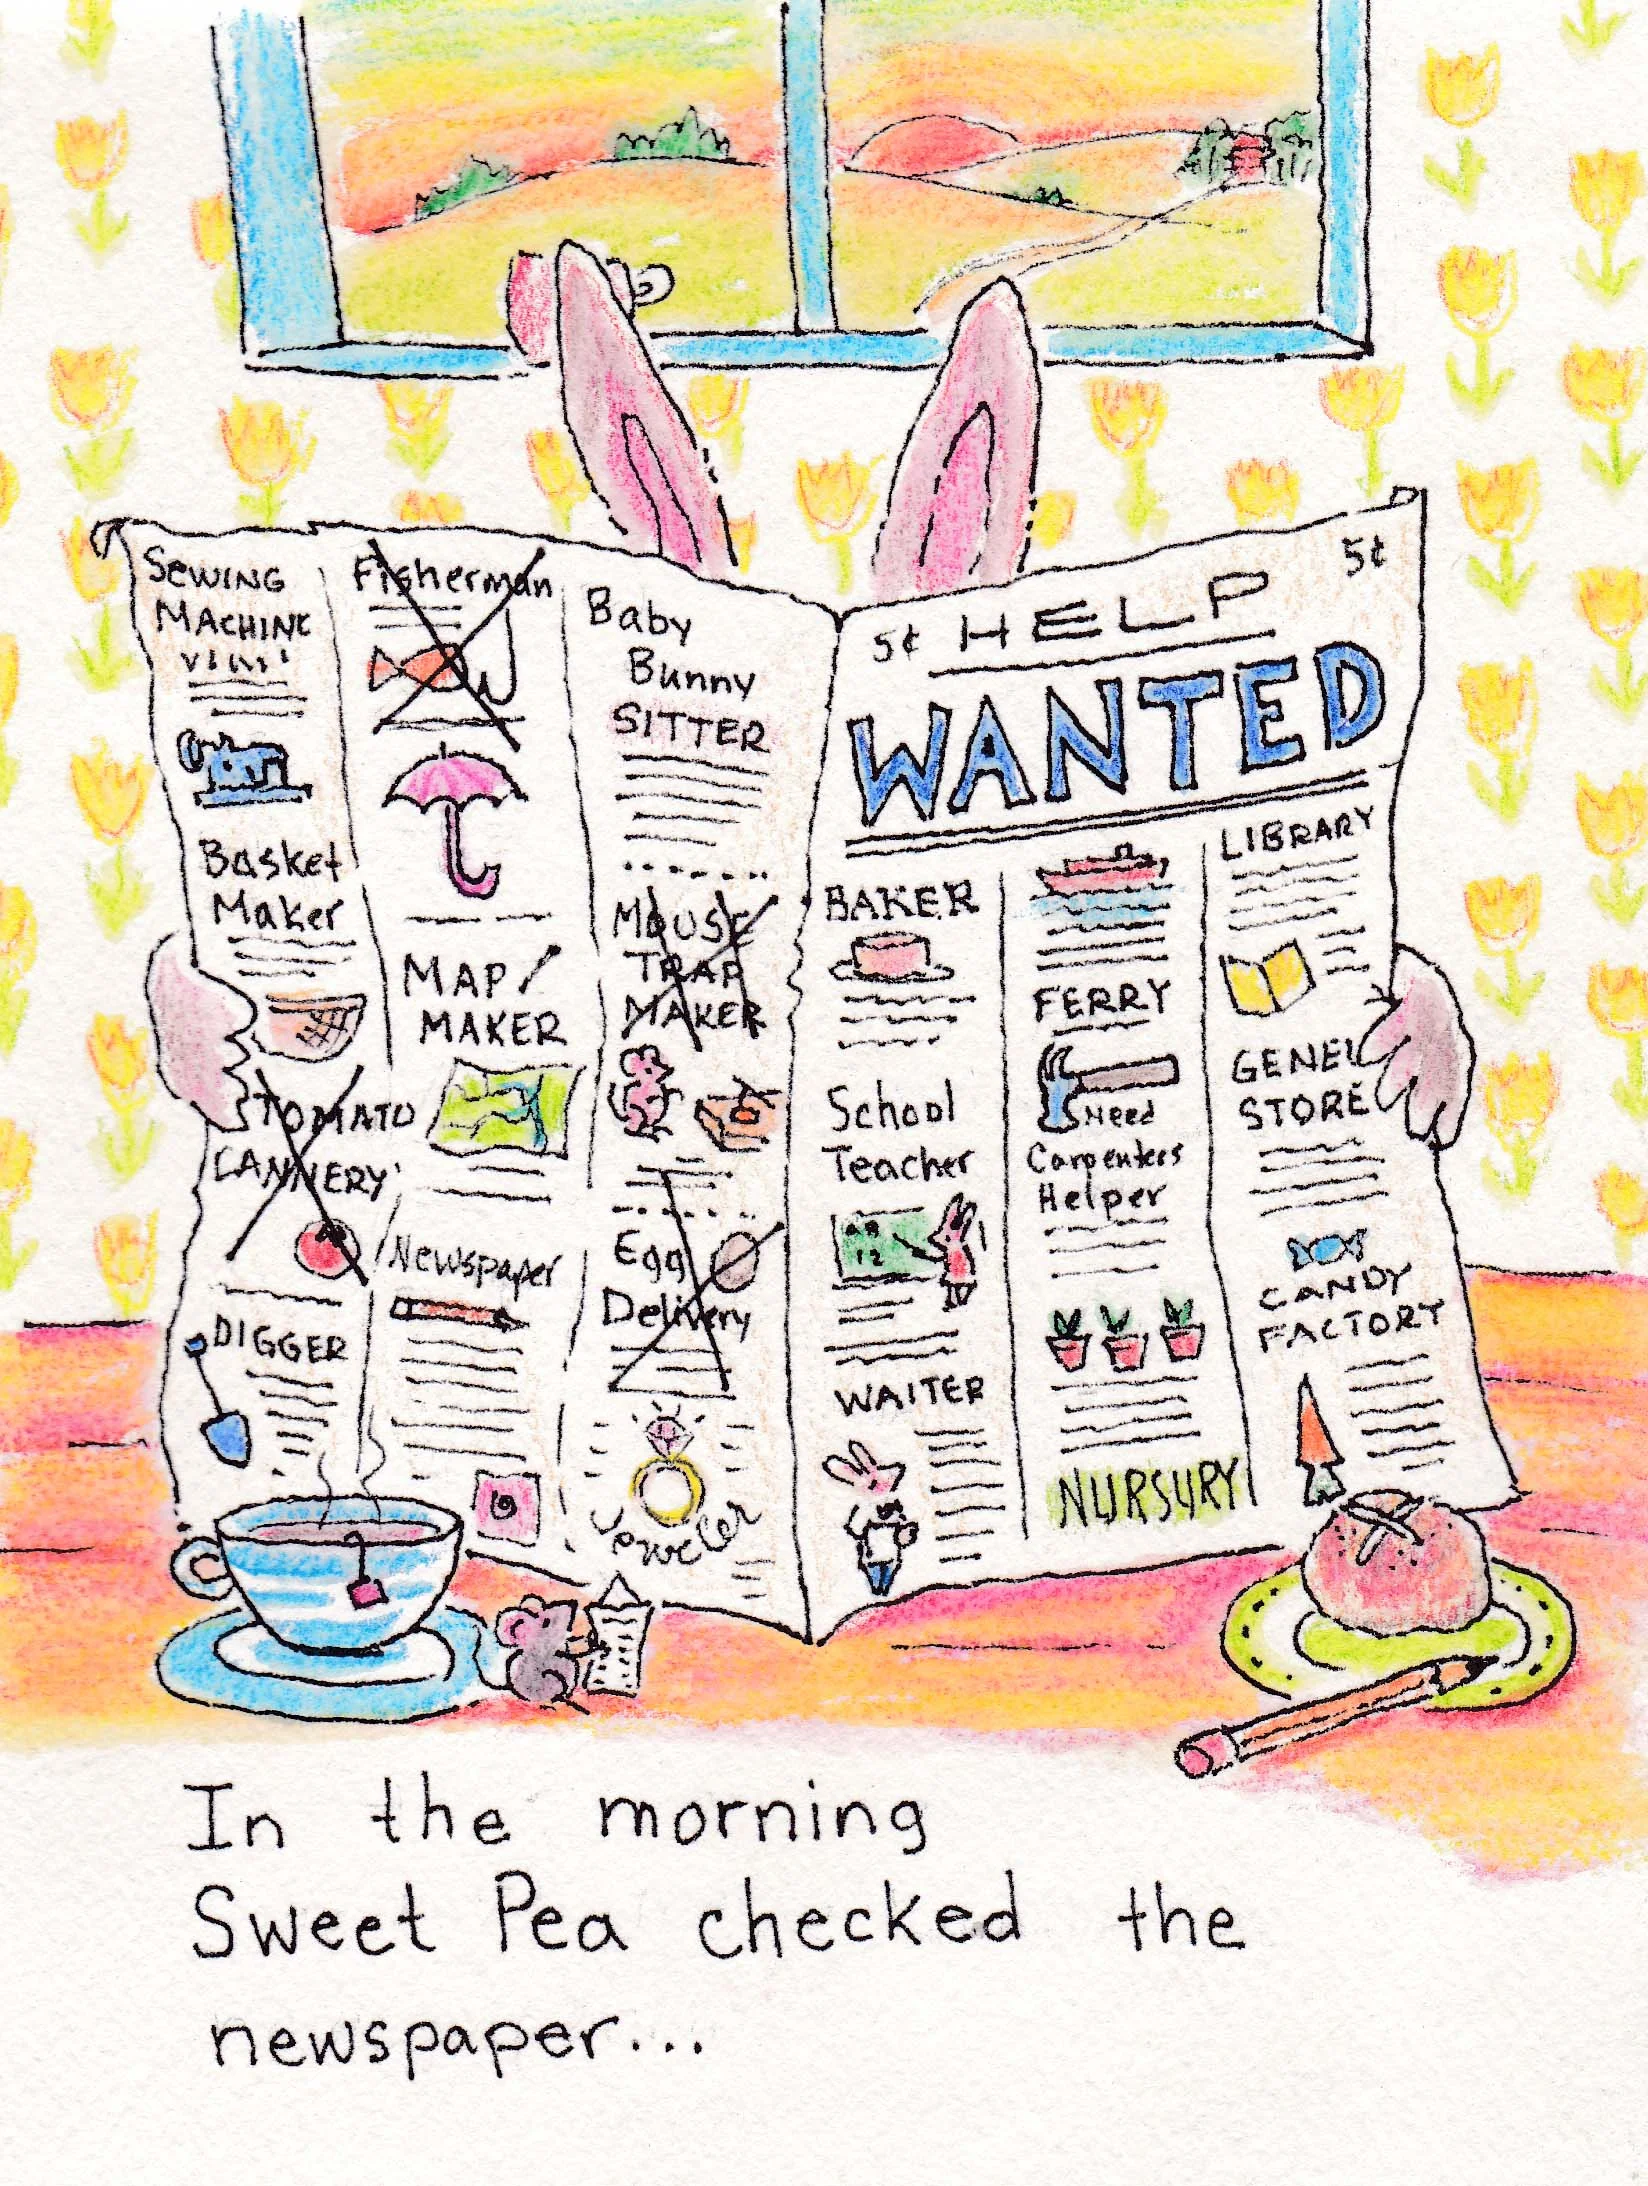 SEWING
MACHINE
Basket
Maker
TOMATO
CANNERY
DIGGER
Fisherman
MAP
MAKER
Newspaper
Baby
Bunny
SITTER
MOUSE
TRAP
MAKER
Egg
Delivery
Jeweler
5¢ HELP 5¢
WANTED
BAKER
School
Teacher
AB
12
WAITER
FERRY
Need
Carpenters
Helper
NURSURY
LIBRARY
GENE
STORE
CANDY
FACTORY
In the morning
Sweet Pea checked the
newspaper...